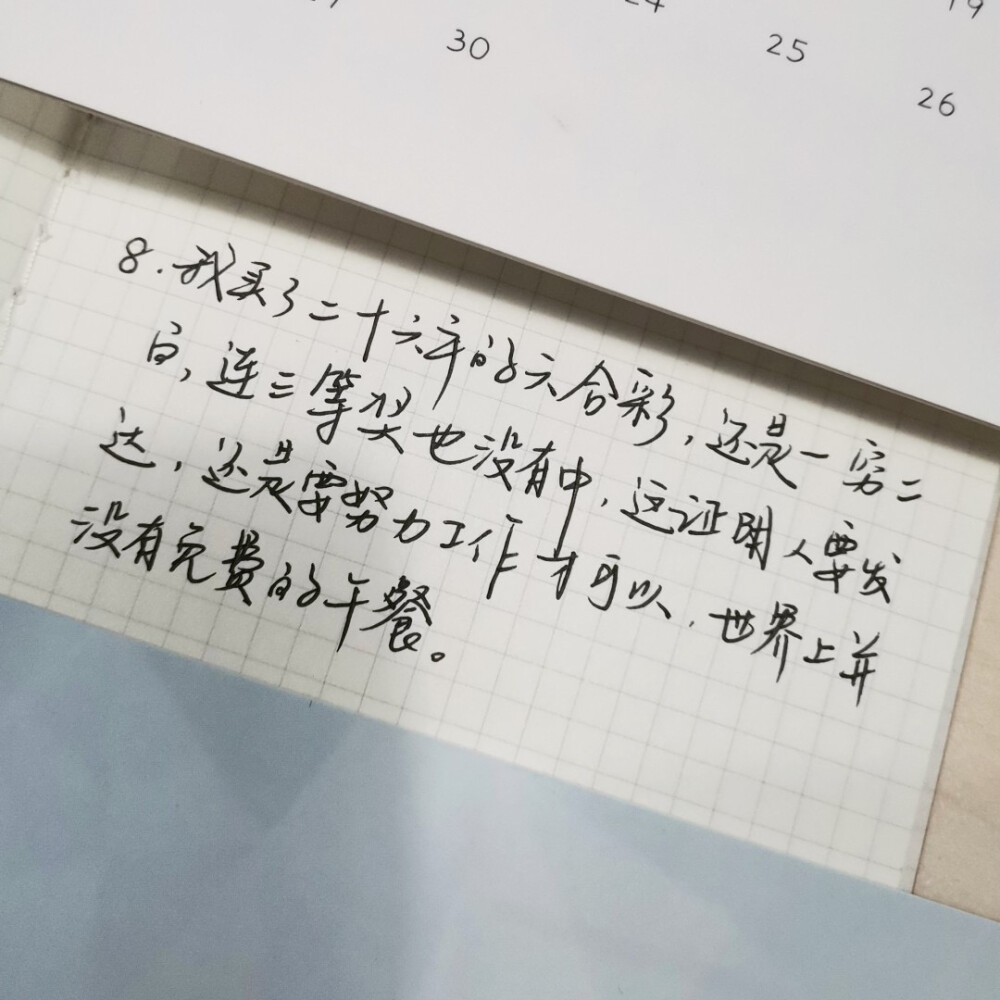 24
19
30
25
26
8.我买了二十六年的六合彩,还是一穷二
白,连三等奖也没有中,这证明人要发
达,还是要努力工作才可以,世界上并
没有免费的午餐。